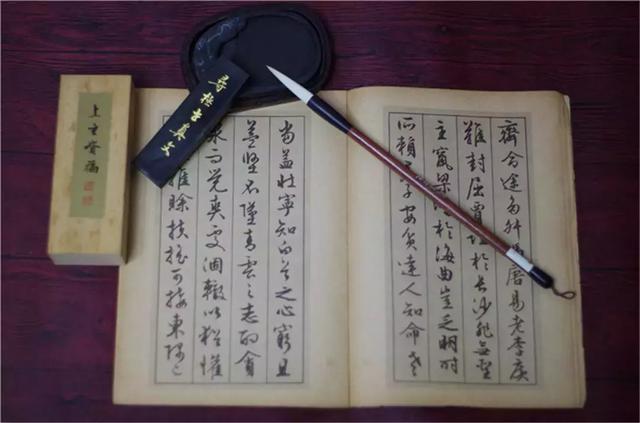 齊命途多舛唐易老李廣
難封屈賈於長沙非無聖
主竄梁於海曲豈乏明時
所賴子安貧達人知命老
當益壯寧知白首之心窮且
益堅不墜青雲之志酌貪
泉而覺爽處涸轍以猶懽
雖賒扶搖可接東隅已
真文
上